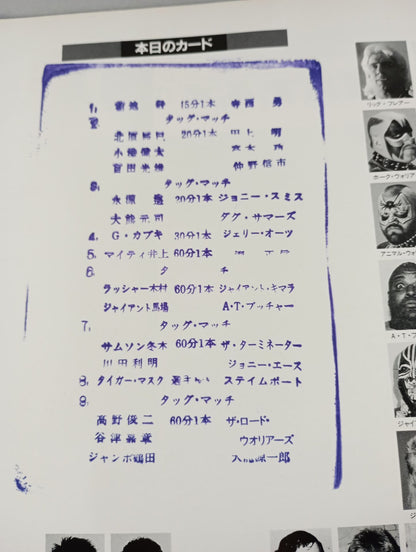 本日のカード
1. 菊池 15分1本 寺西 勇
2. タッグ・マッチ
20分1本 田上 明
小橋健太
百田光雄 仲野信市
3. タッグ・マッチ
永源 遙 20分1本 ジョニー・スミス
大熊元司 ダグ・サマーズ
4. G・カブキ 30分1本 ジェリー・オーツ
5. マイティ井上 60分1本
6. タ チ
ラッシャー木村 60分1本 ジャイアント・キマラ
ジャイアント馬場 A・T・ブッチャー
7. タッグ・マッチ
サムソン冬木 60分1本 ザ・ターミネーター
川田利明 ジョニー・エース
8. タイガー・マスク ステイムボート
9. タッグ・マッチ
高野俊二 60分1本 ザ・ロード・
谷津嘉章 ウオリアーズ
ジャンボ鶴田 天龍源一郎
リック・フレアー
ホーク・ウォリア
アニマル・ウォ
A・T・ブ
ジャイ
ジ